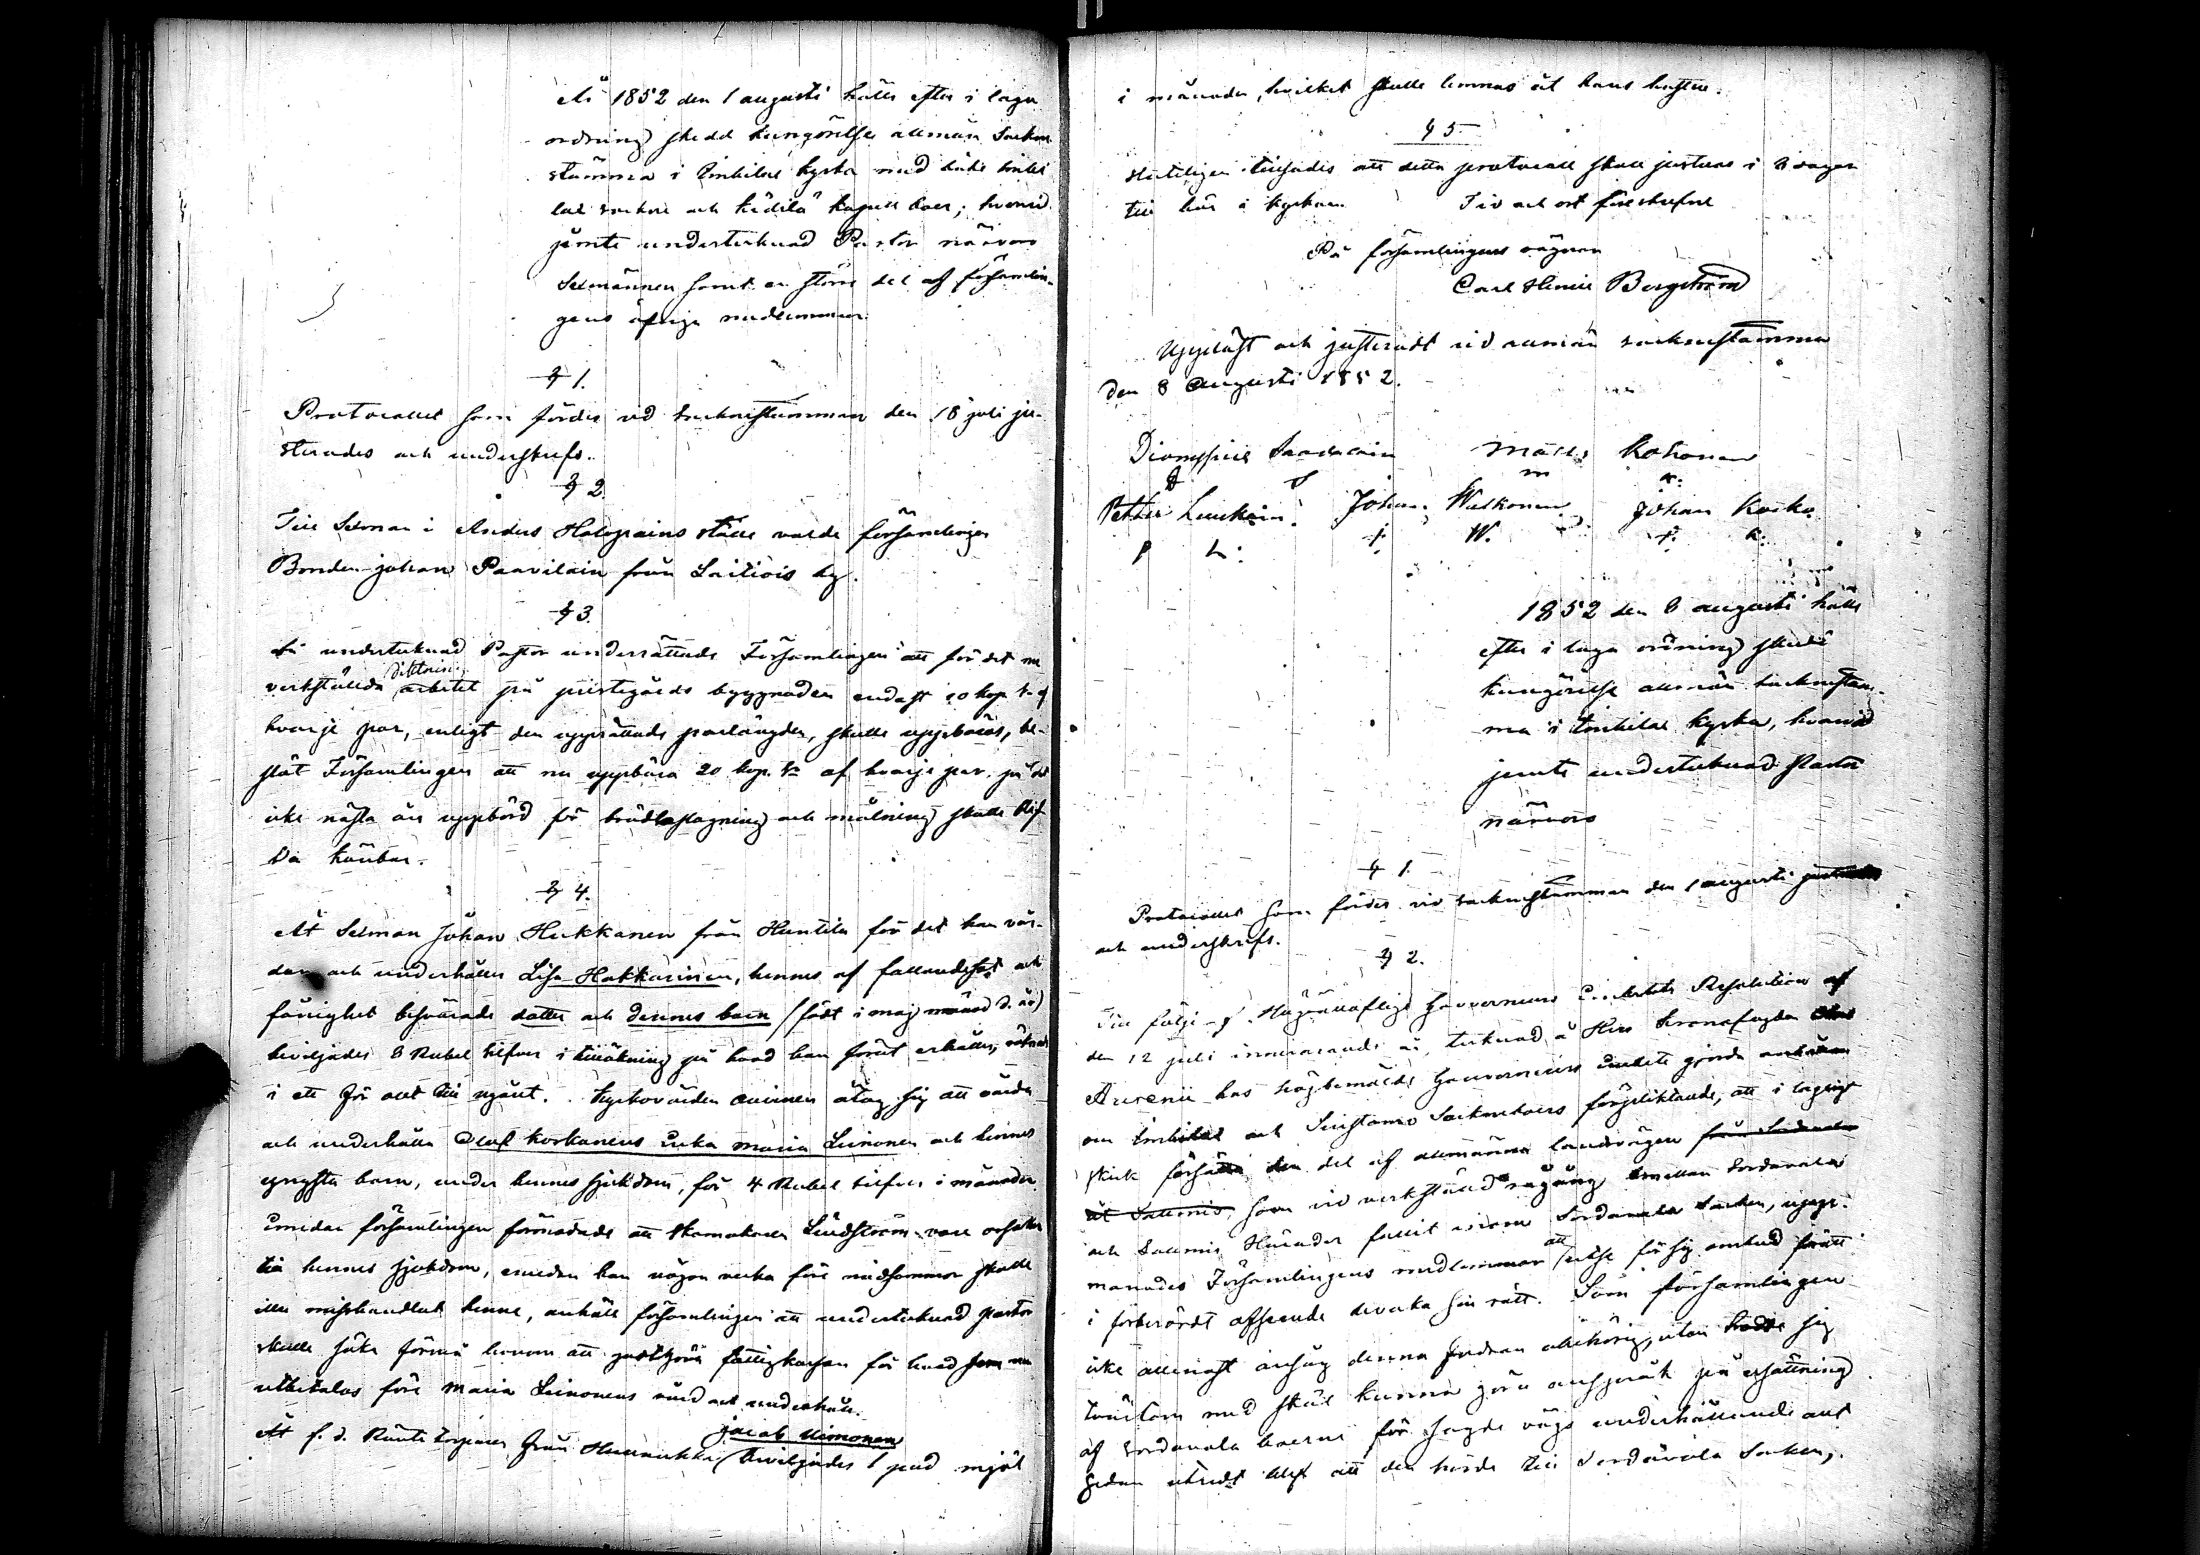 År 1852 den 1 augusti hölls efter i laga
ordning skedd kungörelse allmän Socken
stämma i Imbilax kyrka med både Imbi
lax socken och Kidilä kapell boer; hvarvid
jämte undertecknad Pastor närvoro
Sexmännen samt en större del af församlin-
gens öfriga medlemmar
§ 1.
Protocollet som fördes vid sockenstämman den 18 juli ju-
sterades och underskrefs.
§ 2.
Till Sexman i Anders Halopains ställe valde församlingen
Bonden Johan Paavilain från Laitiois by.
§ 3.
Då undertecknad Pastor underrättade Församlingen att för det nu
verkstälda arbetet på prestegårds byggnaden endast 10 kop. Sr af
hvarje par, enligt den upprättade parlängden, skulle uppbäras, be-
slöt Församlingen att nu uppbära 20 kop. Sr af hvarje par. på det
icke nästa års uppbörd för brädbeslagning och målning skulle blif
va kännbar.
§ 4.
Åt Sexman Johan Hukkanen från Huntila för det han vår-
dar och underhåller Lisa Hakkarinen, hennes af fallandesot och
fånighet besvärade dotter och dennes barn (född i maj månad d. år)
beviljades 8 Rubel silfver i tillökning på hvad han förut erhåller,
i ett för allt till nyåret. Kyrkovärden Auvinen åtog sig att vårda
och underhålla Olof Korkanens Enka Maria Leinonen och hennes
yngsta barn, under hennes sjukdom, för 4 Rubel silfver i månaden
Emedan församlingen förmodade att skomakaren Lindström vore orsaken
till hennes sjukdom, emedan han någon vecka före midsommar skall
illa misshandlat henne, anhöll församlingen att undertecknad pastor
skulle söka förmå honom att godtgöra fattigkassan för hvad som nu
utbetalas före Maria Leinonens vård och underhåll.
Jacob Simonen
Åt f. d. Ränte torparen från Hunnukka (beviljades 1 pud mjöl
i månaden, hvilket skulle lemnas åt hans hustru.
§ 5.
Slutligen tillsades att detta protocoll skall justeras i 8 dagar
till här i kyrkan Tid och ort föreskrefne
På församlingens vägnar
Carl Henric Bergström
Uppläst och justeradt vid allmän sockenstämma
den 8 Augusti 1852.
Dionysius Saovelain Matts Kohonen
D S m K:
Petter Leuskain. Johan Walkonen, Johan Koski
P L: J. W. J. K:
1852 den 8 augusti hölls
efter i laga ordning skedd
kungörelse allmän sockenstäm-
ma i Imbilax kyrka, hvarvid
jemte undertecknad Pastor
närvoro
§ 1.
Protocollet som fördes vid sockenstämman den 1 augusti justerades
och underskrefs.
§ 2.
Till följe af Höggrefliga Gouverneurs Embetets Resolution af
den 12 juli innevarande år, tecknad å Herr Kronofogden
Arrenii hos högbemälde Gouverneurs Embete gjorda anhållan
om Imbilax och Suistamo Sockneboers förpliktande, att i lagligt
skick försätta den del af allmänna landsvägen från Sordavala
åt Salmis, som vid verkställd rågång emellan Sordavala
och Salmis Härader fallit inom Sordavala Socken, upp-
manades Församlingens medlemmar att utse för sig ombud för att
i förberördt afseende bevaka sin rätt. Som församlingen
icke allenast ansåg denna fordran obehörig, utan trodde sig
tvärtom med skäl kunna göra anspråk på ersättning
af Sordavala boerne för sagde vägs underhållande allt
sedan utredt blef att den hörde till Sordavala Socken,